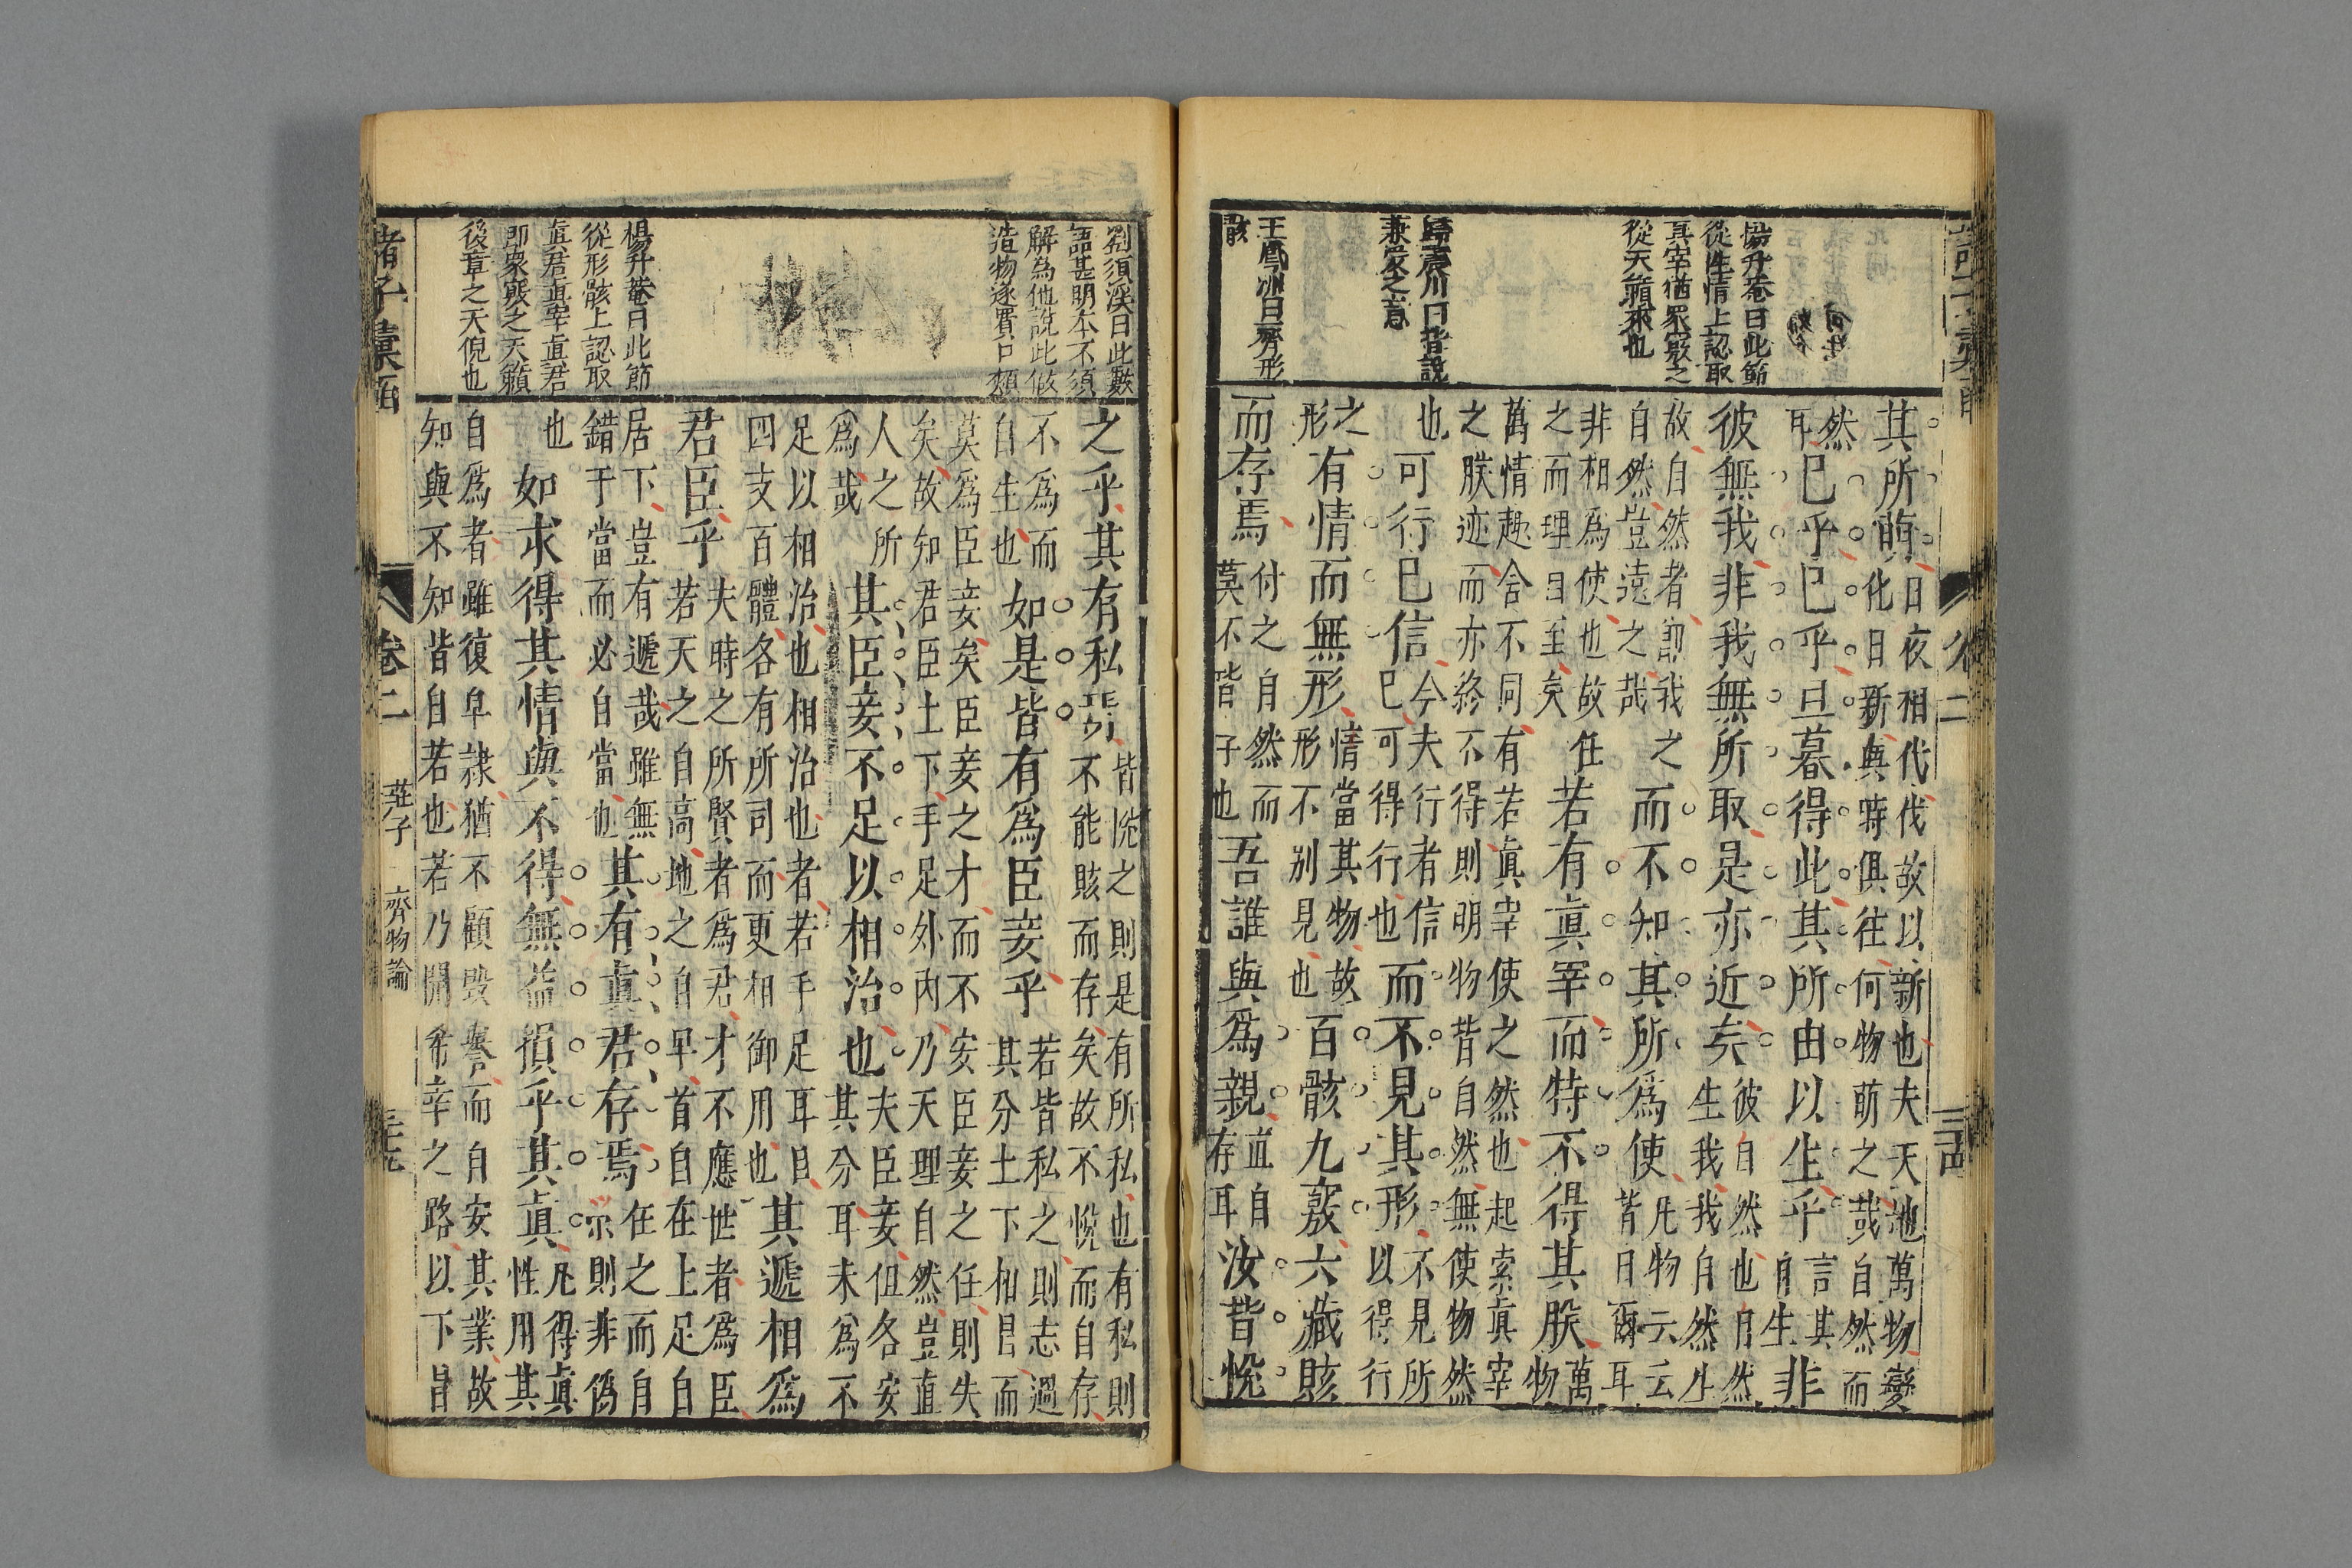 楊升菴曰此節
從性情上認取
真宰猶衆竅之
從天籟來也
歸震川曰皆說
兼愛之意
王鳳洲曰齊形
骸
其所萌日夜相代代故以新也夫天地萬物變化日新與時俱往何物萌之哉自然而
然耳已乎已乎旦暮得此其所由以生乎言其自生非
彼無我非我無所取是亦近矣彼自然也自然生我我自然生
故自然者即我之自然豈遠之哉而不知其所爲使凡物云云皆曰爾耳
非相爲使也故任之而理自至矣若有眞宰而特不得其朕萬物
萬情趣舍不同有若眞宰使之然也起索眞宰之朕迹而亦終不得則明物皆自然無使物然
也可行已信今夫行者信已可得行也而不見其形不見所以得行
之形有情而無形情當其物故形不别見也百骸九竅六藏賅
而存焉付之自然而莫不皆子也吾誰與爲親直自存耳汝皆悅
劉須溪曰此數
語甚明本不須
解爲他說此做
造物遂
楊升菴曰此節
從形骸上認取
眞君眞宰眞君
即衆竅之天籟
後章之天倪也
之乎其有私焉皆悅之則是有所私也有私則不能賅而存矣故不悅而自存
不爲而自生也如是皆有爲臣妾乎若皆私之則志過其分上下相冒而
莫爲臣妾矣臣妾之才而不安臣妾之任則失矣故知君臣上下手足外內乃天理自然豈直
人之所爲哉其臣妾不足以相治也夫臣妾但各安其分耳未爲不
足以相治也相治也者若手足耳目四支百體各有所司而更相御用也其遞相爲
君臣乎夫時之所賢者爲君才不應世者爲臣若天之自高地之自卑首自在上足自
居下豈有遞哉雖無錯于當而必自當也其有眞君存焉任之而自爾則非偽
也如求得其情與不得無益損乎其眞凡得眞性用其
自爲者雖復皁隸猶不顧毀譽而自安其業故知與不知皆自若也若乃開希幸之路以下冒
諸子彙函
卷二
莊子
齊物論